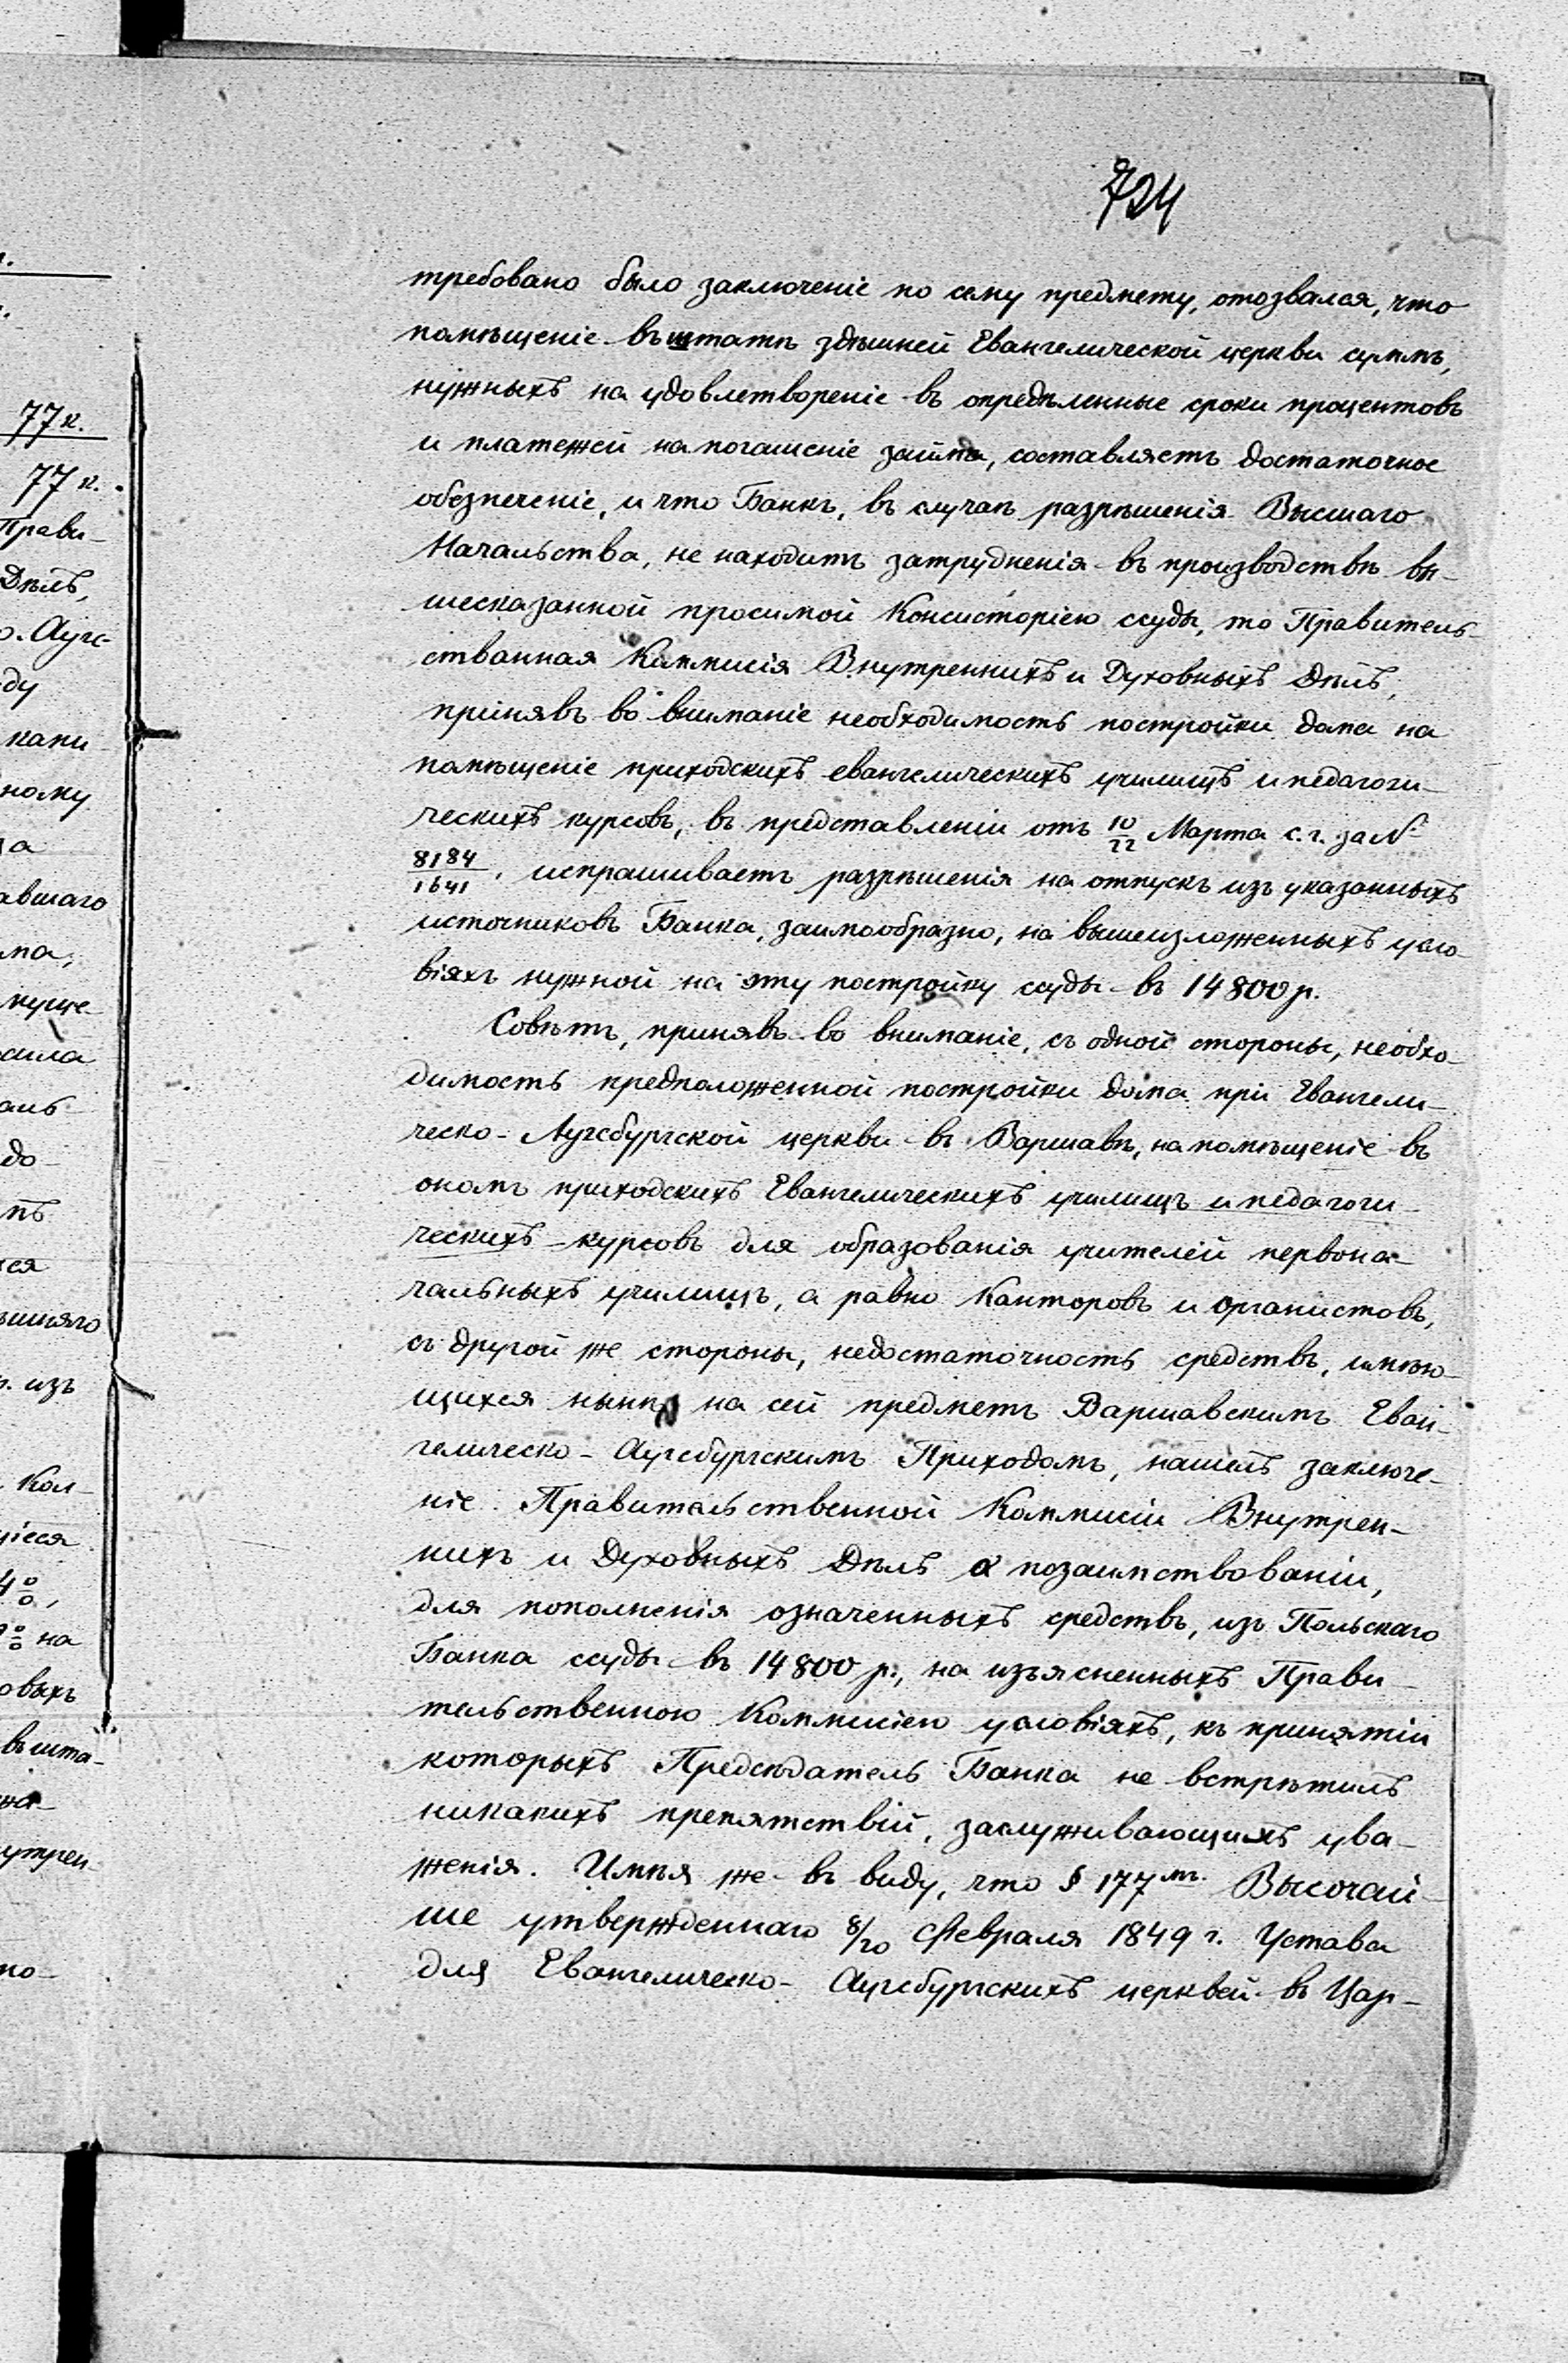 724
требовано было заключеніе по сему предмету, отозвался, что
помѣщеніе въ штатъ здѣшней Евангелической церкви суммъ,
нужныхъ на удовлетвореніе въ опредѣленные сроки процентовъ
и платежей на погашеніе займа, составляетъ достаточное
обезпеченіе, и что Банкъ, въ случаѣ разрѣшенія Высшаго
Начальства, не находитъ затрудненія въ производствѣ вы-
шесказанной просимой Консисторіею ссуды, то Правитель-
ственная Коммисія Внутреннихъ и Духовныхъ Дѣлъ,
принявъ во вниманіе необходимость постройки дома на
помѣщеніе приходскихъ евангелическихъ училищъ и педагоги-
ческихъ курсовъ, въ представленіи отъ 10/22 Марта с. г. за №
8184/1641, испрашиваетъ разрѣшенія на отпускъ изъ указанныхъ
источниковъ Банка, заимообразно, на вышеизложенныхъ усло-
віяхъ нужной на эту постройку ссуды въ 14800 р.
Совѣтъ, принявъ во вниманіе, съ одной стороны, необхо-
димость предположенной постройки дома при Евангели-
ческо-Аугсбургской церкви въ Варшавѣ, на помѣщеніе въ
ономъ приходскихъ Евангелическихъ училищъ и педагоги-
ческихъ курсовъ для образованія учителей первона-
чальныхъ училищъ, а равно Канторовъ и органистовъ,
съ другой же стороны, недостаточность средствъ, имѣю-
щихся нынѣ на сей предметъ Варшавскимъ Еван-
гелическо-Аугсбургскимъ Приходомъ, нашелъ заключе-
ніе Правительственной Коммисіи Внутрен-
нихъ и Духовныхъ Дѣлъ о позаимствованіи,
для пополненія означенныхъ средствъ, изъ Польскаго
Банка ссуды въ 14800 р., на изъясненныхъ Прави-
тельственною Коммисіею условіяхъ, къ принятіи
которыхъ Предсѣдатель Банка не встрѣтилъ
никакихъ препятствій, заслуживающимъ ува-
женія. Имѣя же въ виду, что § 177мъ. Высочай-
ше утвержденнаго 8/20 Февраля 1849 г. Устава
для Евангелическо-Аугсбургскихъ церквей въ Цар-
77 к.
77 к.
Прави-
Дѣлъ,
Аугс-
ду
капи-
ному
авшаго
ма,
изъ
Кол-
на
овыхъ
въ шта-
утрен-